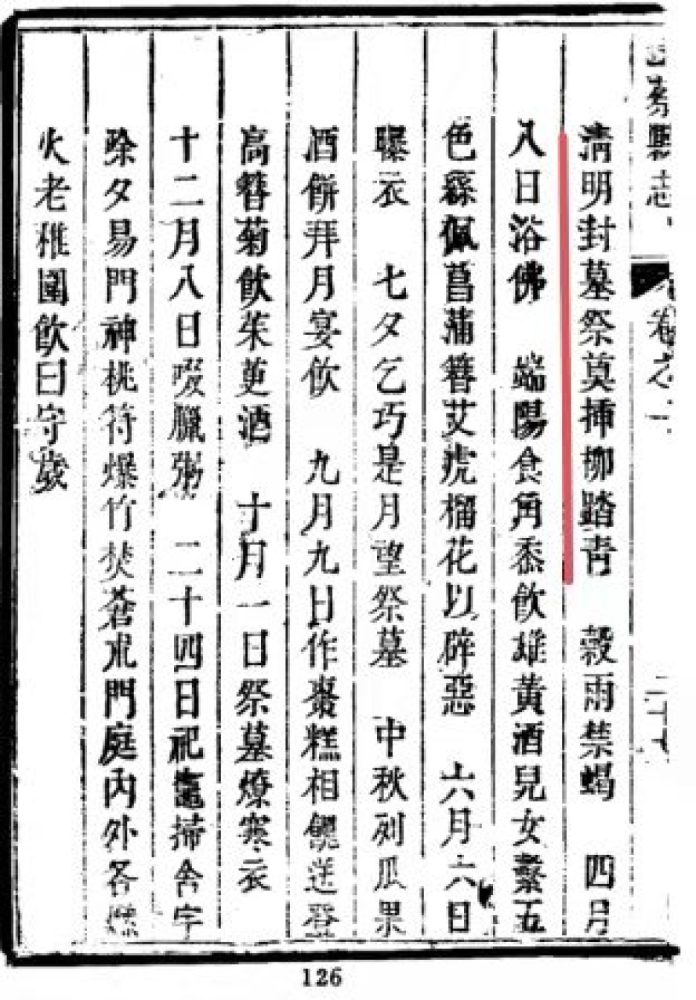 縣志
卷之一
清明封墓祭奠揷柳踏青　穀雨禁蝎　四月
八日浴佛　端陽食角黍飲雄黃酒兒女繫五
色縧佩菖蒲簪艾虎榴花以辟惡　六月六日
曝衣　七夕乞巧是月望祭墓　中秋列瓜果
酒餅拜月宴飲　九月九日作棗糕相餽送登
高簪菊飲茱萸酒　十月一日祭墓燎寒衣
十二月八日啜臘粥　二十四日祀竈掃舍宇
除夕易門神桃符爆竹焚蒼朮門庭內外各燃
火老稚圍飲曰守歲
126